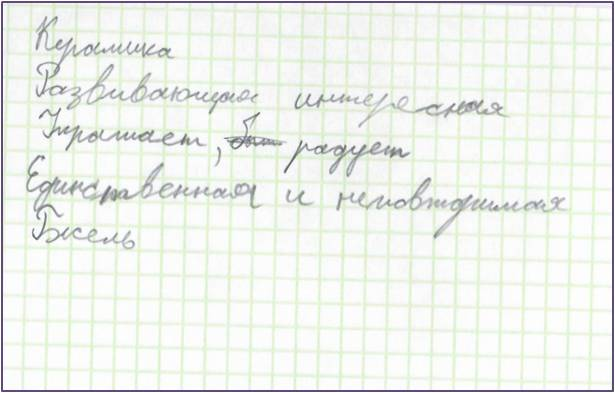 Керамика
Развивающая интересная
Украшает, радует
Единственная и неповторимая
Гжель